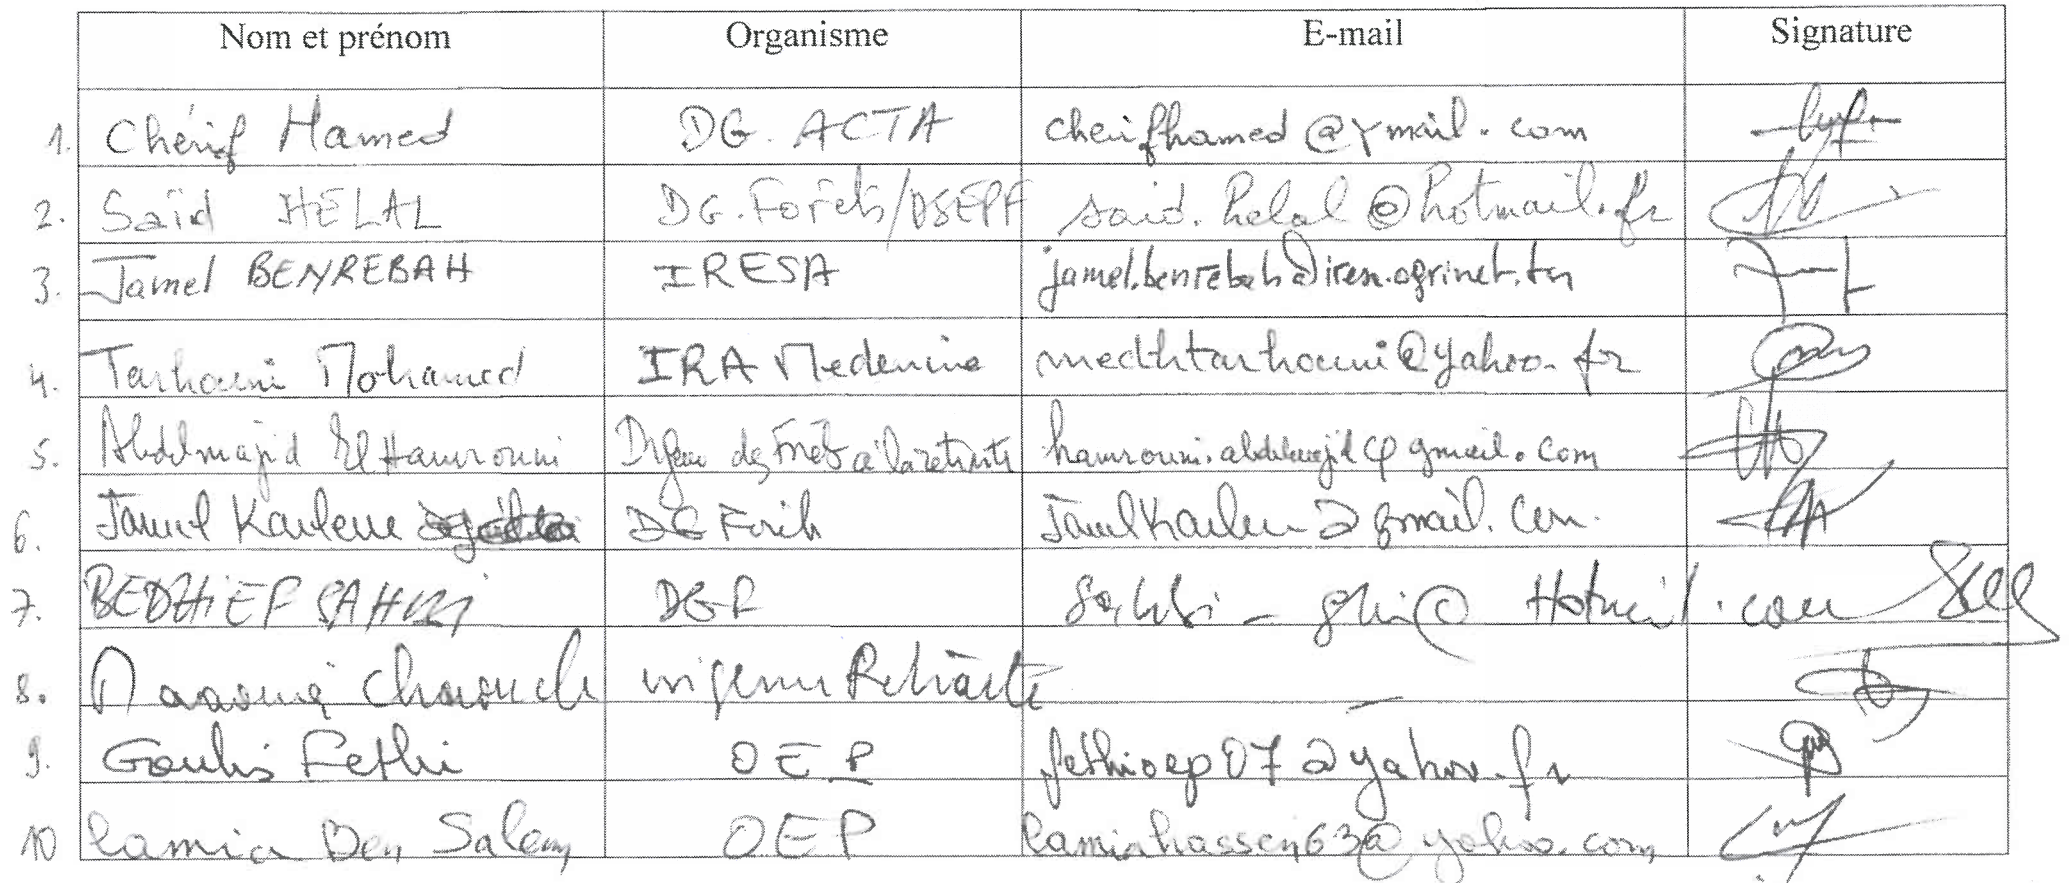 Nom et prénom Organisme E-mail Signature
1. Chérif Hamed DG. ACTA cherifhamed@ymail.com
2. Saïd HELAL DG. Forêts/DSEPF said.helal@hotmail.fr
3. Jamel BENREBAH IRESA jamel.benrebah@iresa.agrinet.tn
4. Tarhouni Mohamed IRA Medenine medhtarhouni@yahoo.fr
5. Abdelmajid El Hamrouni des Forêts à la retraite hamrouni.abdelmajid@gmail.com
6. Jamel Kailene DG Forêts
7. BEDHIEF DGF Hotmail.com
8. Chaouch Retraité —
9. Fethi OEP fethioep07@yahoo.fr
10 Lamia Ben Salem OEP lamiahassen63@yahoo.com